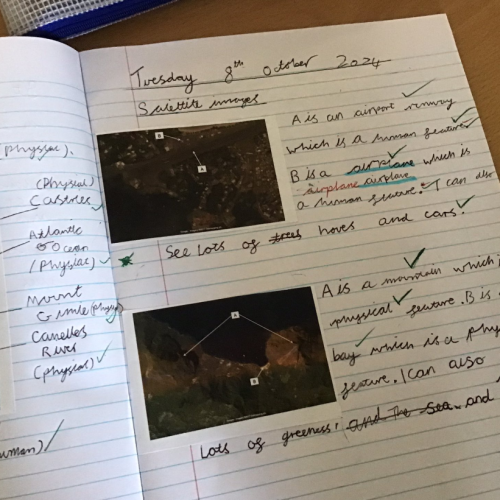 (physical).
(Physical)
Castries
Atlantic
Ocean
(Physical)
Mount
Gimie (physical)
Canelles
River
(physical)
human)
Tuesday 8th October 2024
Satellite images
B
A
A is an airport runway
which is a human feature
B is a airplane which is
airplane airplave
a human feature. I can also
See Lots of trees hoves and cars.
A
B
A is a mountain which i
physical feature. B is
bay which is a phy
feature. I can also
Lots of greeness. and the sea. and